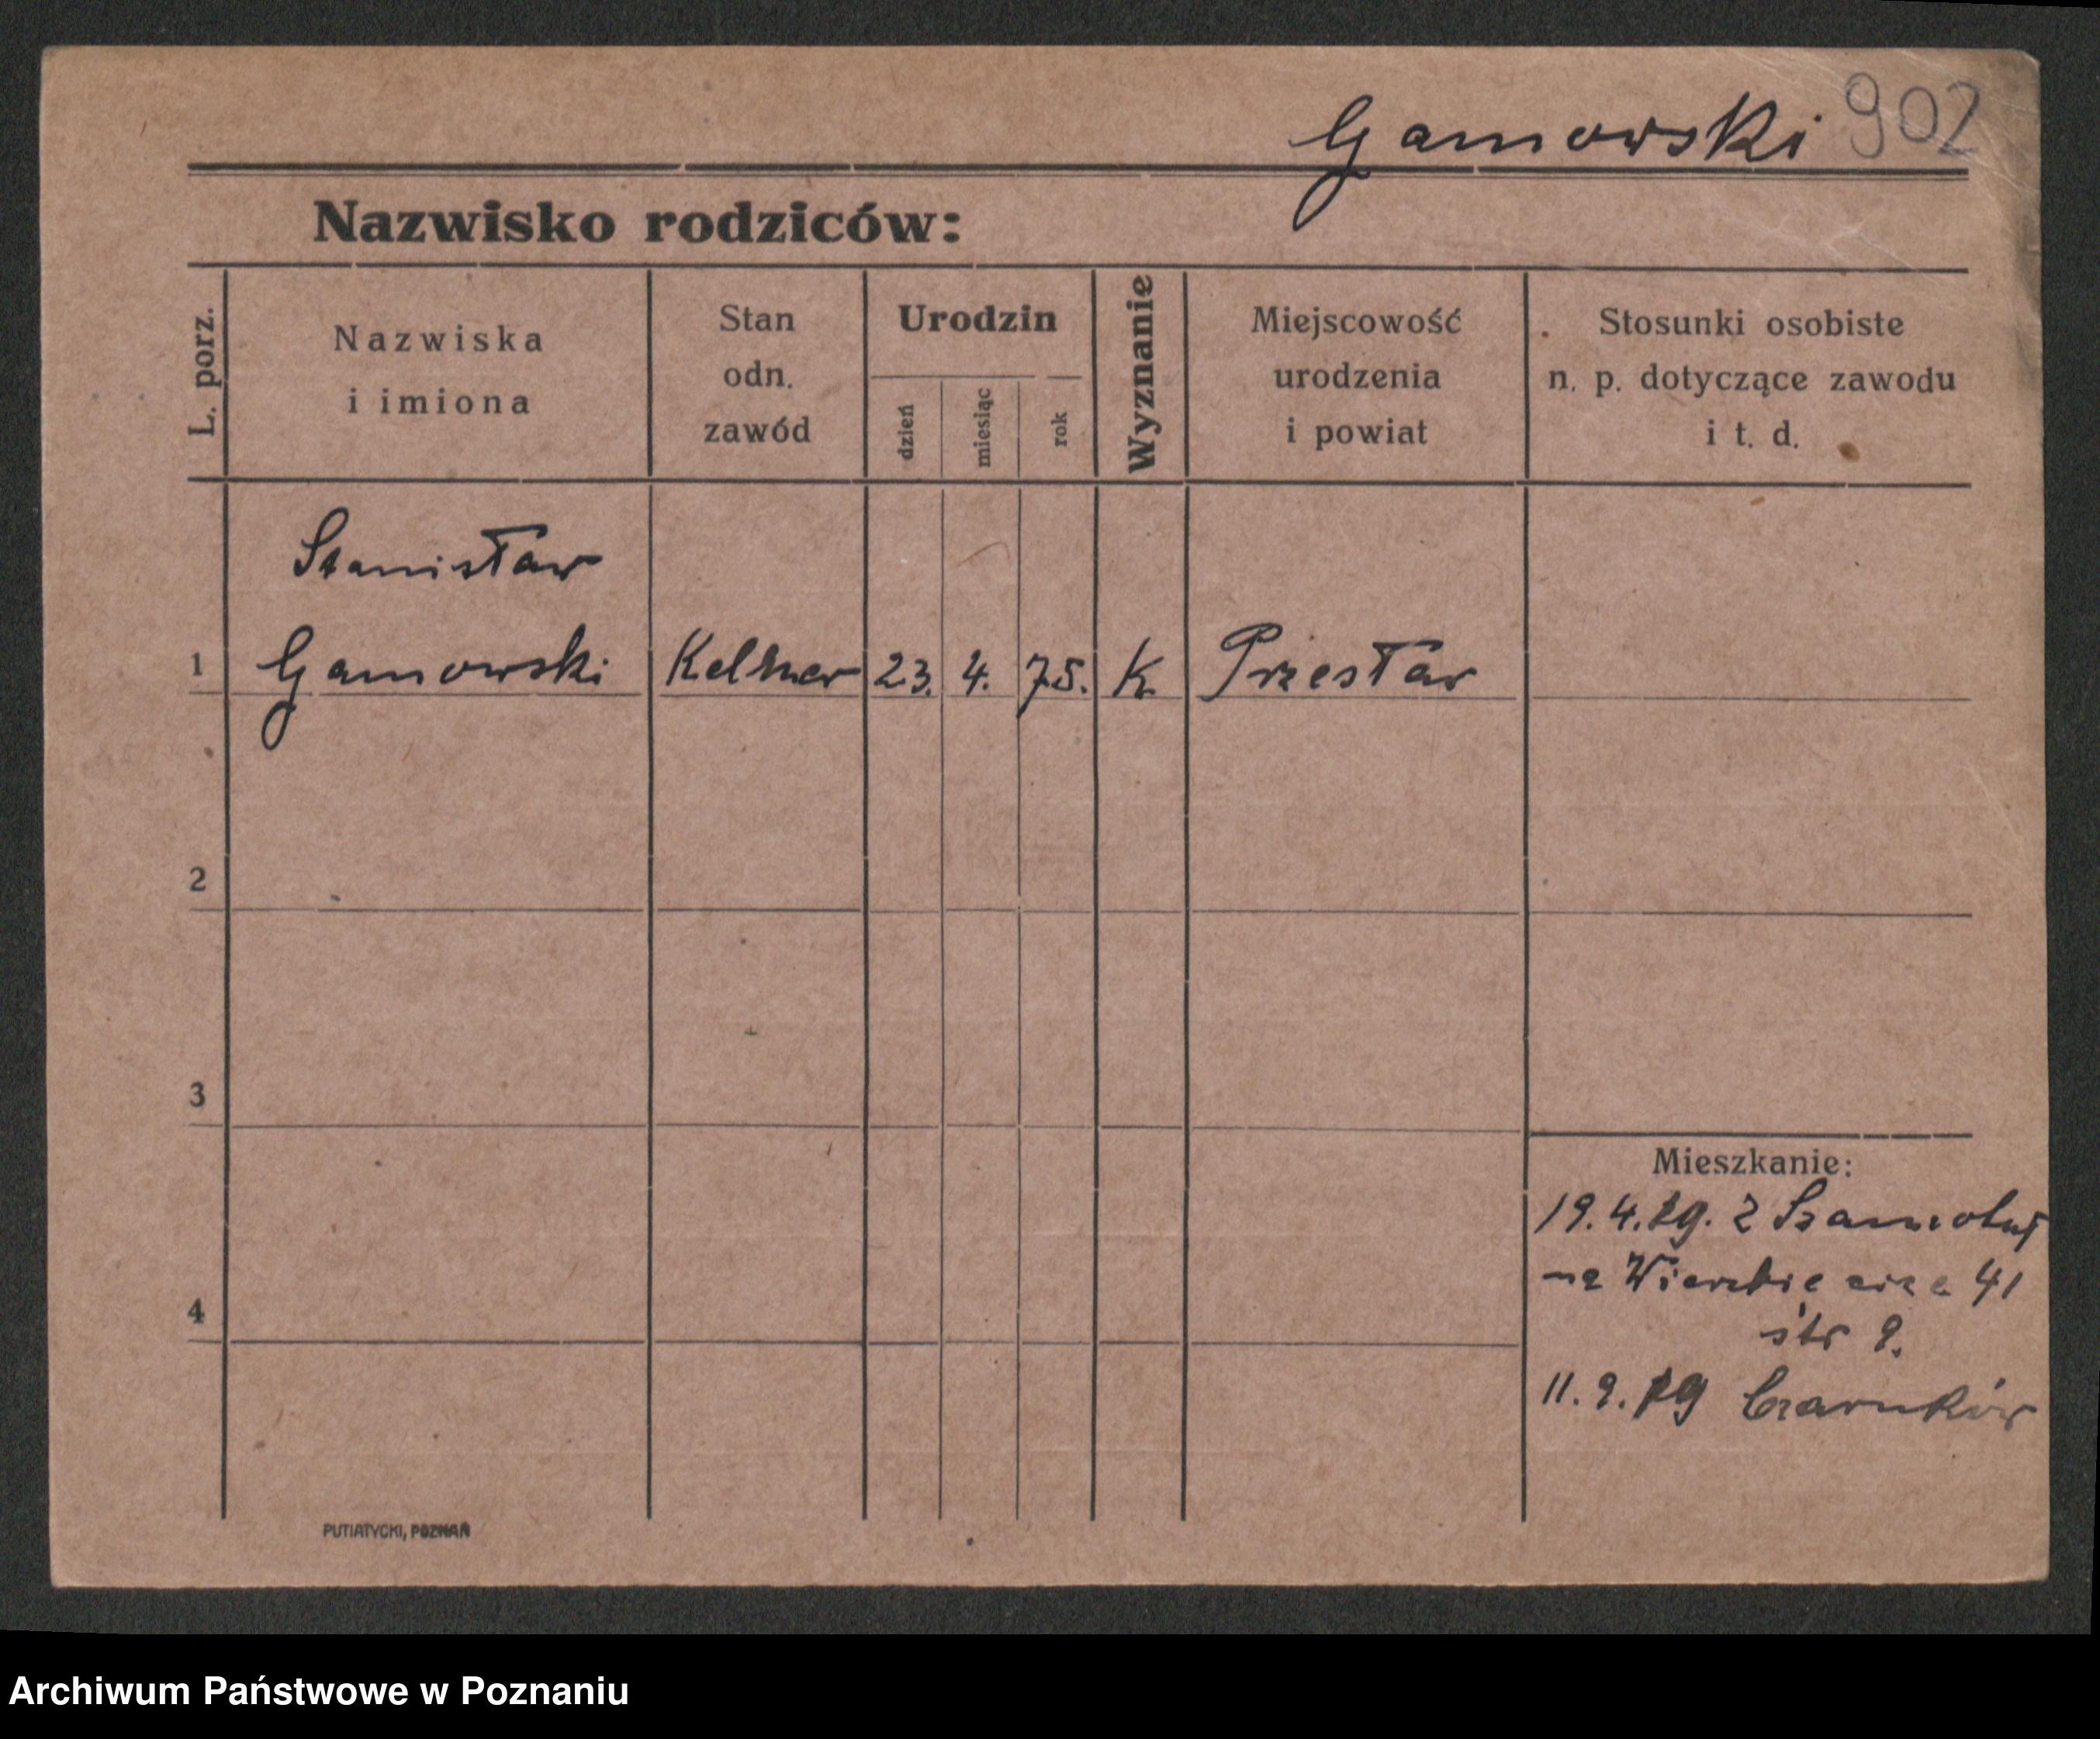 Gamowski 902
Nazwisko rodziców:
L. porz.
Nazwiska
i imiona
Stan
odn.
zawód
Urodzin
dzień
miesiąc
rok
Wyznanie
Miejscowość
urodzenia
i powiat
Stosunki osobiste
n. p. dotyczące zawodu
i t. d.
Stanisław
1 Gamowski Kelner 23. 4. 75. K Przesław
2
3
4
Mieszkanie:
19.4.29. z Szamotuł
na 41
str 9.
11.9.29 Czarnków
PUTIATYCKI, POZNAŃ
Archiwum Państwowe w Poznaniu